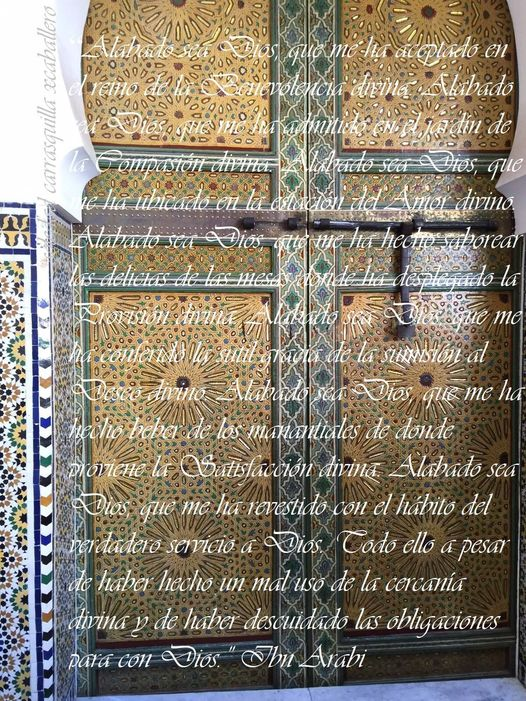 carrosquilla xcaballero
"Alabado sea Dios, que me ha aceptado en
el reino de la Benevolencia divina. Alabado
sea Dios, que me ha admitido en el jardín de
la Compasión divina. Alabado sea Dios, que
me ha ubicado en la estación del Amor divino.
Alabado sea Dios, que me ha hecho saborear
las delicias de las mesas donde ha desplegado la
Provisión divina. Alabado sea Dios, que me
ha conferido la sutil gracia de la sumisión al
Deseo divino. Alabado sea Dios, que me ha
hecho beber de los manantiales de donde
proviene la Satisfacción divina. Alabado sea
Dios, que me ha revestido con el hábito del
verdadero servicio a Dios. Todo ello a pesar
de haber hecho un mal uso de la cercanía
divina y de haber descuidado las obligaciones
para con Dios." Ibn Arabi